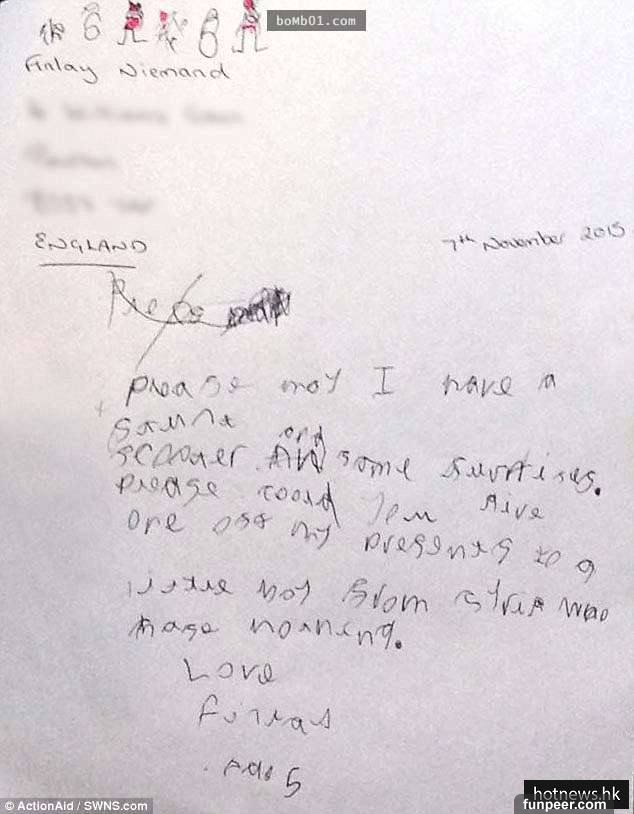 boMb01.com
Finlay Niemand
ENGLAND
7th November 2015
please may I have a
stunt
scooter and some surprises.
please could you give
one off my presents to a
little boy from syria who
hase nothing.
Love
finlay
Age 5
© ActionAid / SWNS.com
hotnews.hk
funpeer.com